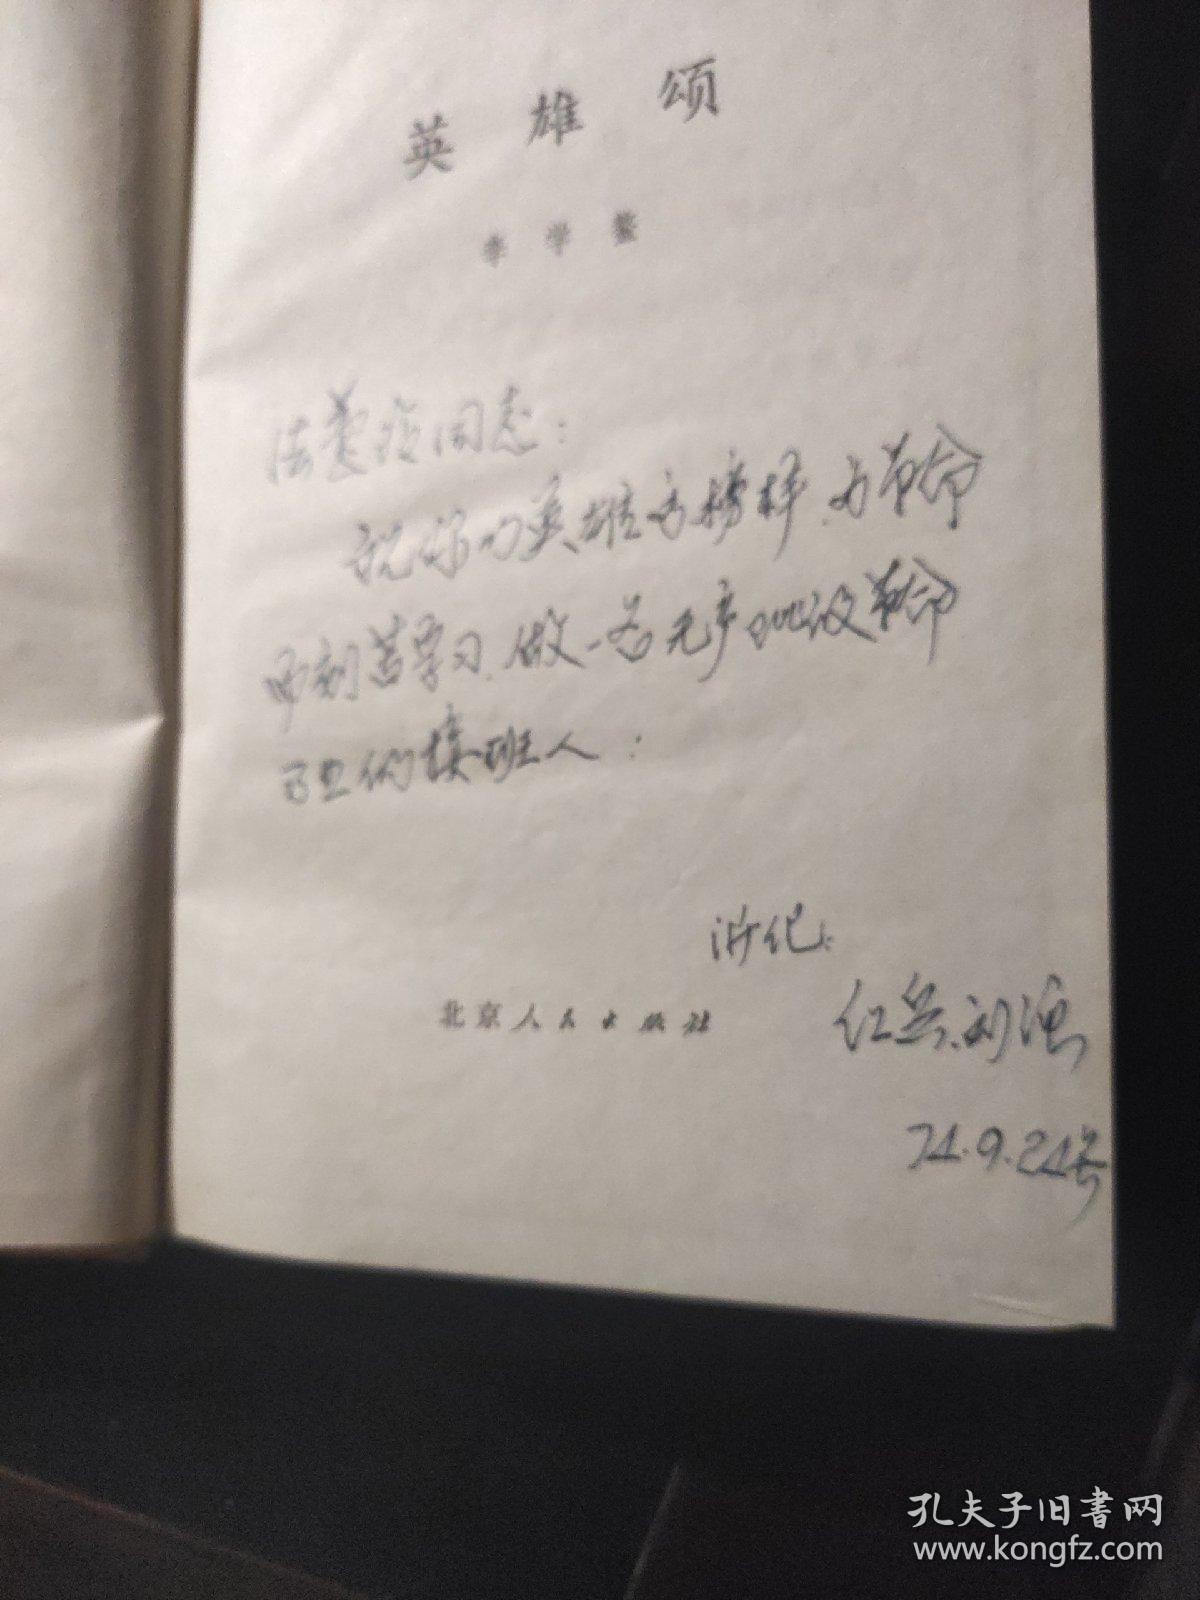 英雄颂
李学鳌
同志：
祝你以英雄为榜样、为革命
而刻苦学习、做一名无产阶级革命
的接班人：
北京人民出版社
红兵、刘强
74.9.24号
孔夫子旧书网
www.kongfz.com